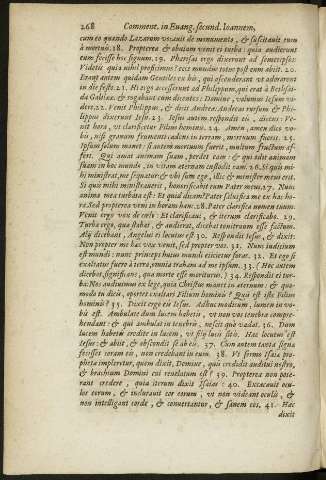 268 Comment. in Euang. secund. Ioannem,
cum eo quando Lazarum vocauit de monumento, & suscitauit eum
à mortuis. 18. Propterea & obuiam venit ei turba: quia audierunt
eum fecisse hoc signum. 19. Pharisæi ergo dixerunt ad semetipsos:
Videtis quia nihil proficimus? ecce mundus totus post eum abijt. 20.
Erant autem quidam Gentiles ex his, qui ascenderant vt adorarent
in die festo. 21. Hi ergo accesserunt ad Philippum, qui erat à Bethsai-
da Galilææ, & rogabant eum dicentes: Domine, volumus Iesum vi-
dere. 22. Venit Philippus, & dicit Andreæ. Andreas rursum & Phi-
lippus dixerunt Iesu. 23. Iesus autem respondit eis, dicens: Ve-
nit hora, vt clarificetur Filius hominis. 24. Amen, amen dico vo-
bis, nisi granum frumenti cadens in terram, mortuum fuerit. 25.
Ipsum solum manet: si autem mortuum fuerit, multum fructum af-
fert. Qui amat animam suam, perdet eam: & qui odit animam
suam in hoc mundo, in vitam æternam custodit eam. 26. Si quis mi-
hi ministrat, me sequatur: & vbi sum ego, illic & minister meus erit.
Si quis mihi ministrauerit, honorificabit eum Pater meus. 27. Nunc
anima mea turbata est: Et quid dicam? Pater saluifica me ex hac ho-
ra. Sed propterea veni in horam hanc. 28. Pater clarifica nomen tuum.
Venit ergo vox de cœlo: Et clarificaui, & iterum clarificabo. 29.
Turba ergo, quæ stabat, & audierat, dicebat tonitruum esse factum.
Alij dicebant, Angelus ei locutus est. 30. Respondit Iesus, & dixit:
Non propter me hæc vox venit, sed propter vos. 31. Nunc iudicium
est mundi: nunc princeps huius mundi eijcietur foras. 32. Et ego si
exaltatus fuero à terra, omnia traham ad me ipsum. 33. (Hoc autem
dicebat, significans, qua morte esset moriturus.) 34. Respondit ei tur-
ba: Nos audiuimus ex lege, quia Christus manet in æternum: & quo-
modo tu dicis, oportet exaltari Filium hominis? Quis est iste Filius
hominis? 35. Dixit ergo eis Iesus. Adhuc modicum, lumen in vo-
bis est. Ambulate dum lucem habetis, vt non vos tenebræ compre-
hendant: & qui ambulat in tenebris, nescit quo vadat. 36. Dum
lucem habetis credite in lucem, vt filij lucis sitis. Hæc locutus est
Iesus: & abijt, & abscondit se ab eis. 37. Cum autem tanta signa
fecisset coram eis, non credebant in eum. 38. Vt sermo Isaiæ pro-
phetæ impleretur, quem dixit, Domine, quis credidit auditui nostro,
& brachium Domini cui reuelatum est? 39. Propterea non pote-
rant credere, quia iterum dixit Isaias: 40. Excæcauit ocu-
los eorum, & indurauit cor eorum, vt non videant oculis, &
non intelligant corde, & conuertantur, & sanem eos. 41. Hæc
dixit